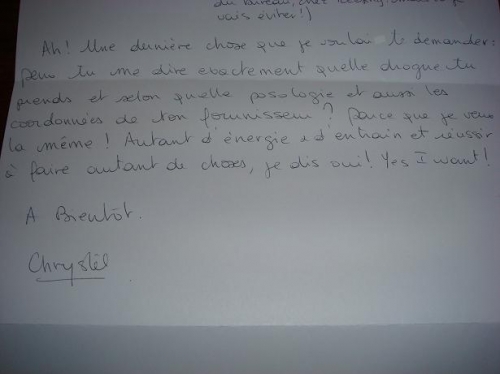 du bureau, chez
vais éviter!)
Ah! Une dernière chose que je voulais te demander:
peux tu me dire exactement quelle drogue tu
prends et selon quelle posologie et aussi les
coordonnées de ton fournisseur? parce que je veux
la même! Autant d'énergie et d'entrain et réussir
à faire autant de choses, je dis oui! Yes I want!
A Bientôt.
Chrystèl